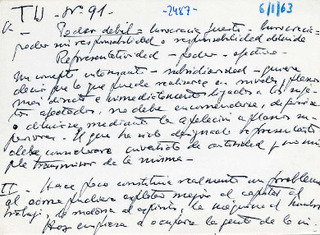 TW - Nº 91. -2487- 6/11/63
I - Poder débil = burocracia fuerte - burocracia =
poder sin responsabilidad o responsabilidad diluida
Representatividad - poder - efectivo -
Un concepto interesante - subsidiariedad - quiere
decir que lo que puede realizarse en niveles y planos
más directa e inmediatamente ligados a los suje-
tos afectados, no debe encomendarse, deferirse
o mediante la apelación a planos su-
periores. El que ha sido designado representante
debe considerarse investido de autoridad y no sim-
ple transmisor de la misma -
II - Hace poco constituía realmente un problema
al cómo pudiera explotar mejor el capital al
trabajo, la materia al espíritu, la máquina al hombre
Hoy empieza a ocupar a la gente de lo in-